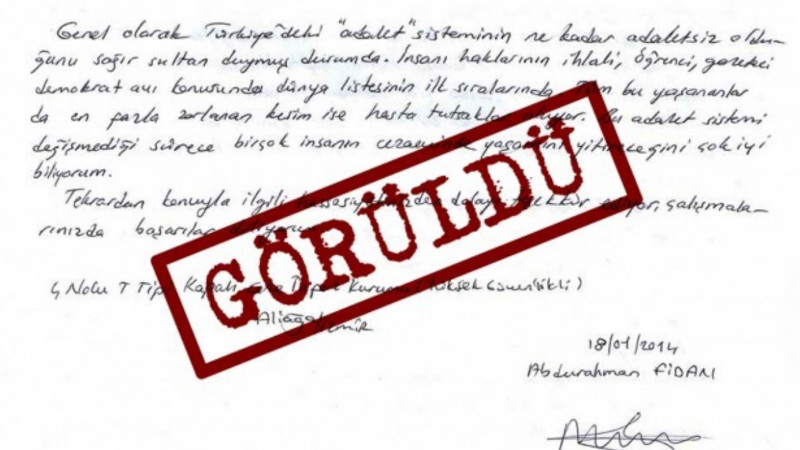 Genel olarak Türkiye'deki "adalet" sisteminin ne kadar adaletsiz oldu-
ğunu sağır sultan duymuş durumda. İnsanı haklarının ihlali, öğrenci, gazeteci
demokrat avı konusunda dünya listesinin ilk sıralarında. Tüm bu yaşananlar
da en fazla zorlanan kesim ise hasta tutsaklar oluyor. Bu adalet sistemi
değişmediği sürece birçok insanın cezaevinde yaşamını yitireceğini çok iyi
biliyorum.
Tekrardan konuyla ilgili dolayı teşekkür ediyor, çalışmala-
rınızda başarılar diliyorum
4 Nolu T Tipi Kapalı Kurumu (Yüksek Güvenlikli)
Aliağa/İzmir
GÖRÜLDÜ
18/01/2014
Abdurahman FİDAN